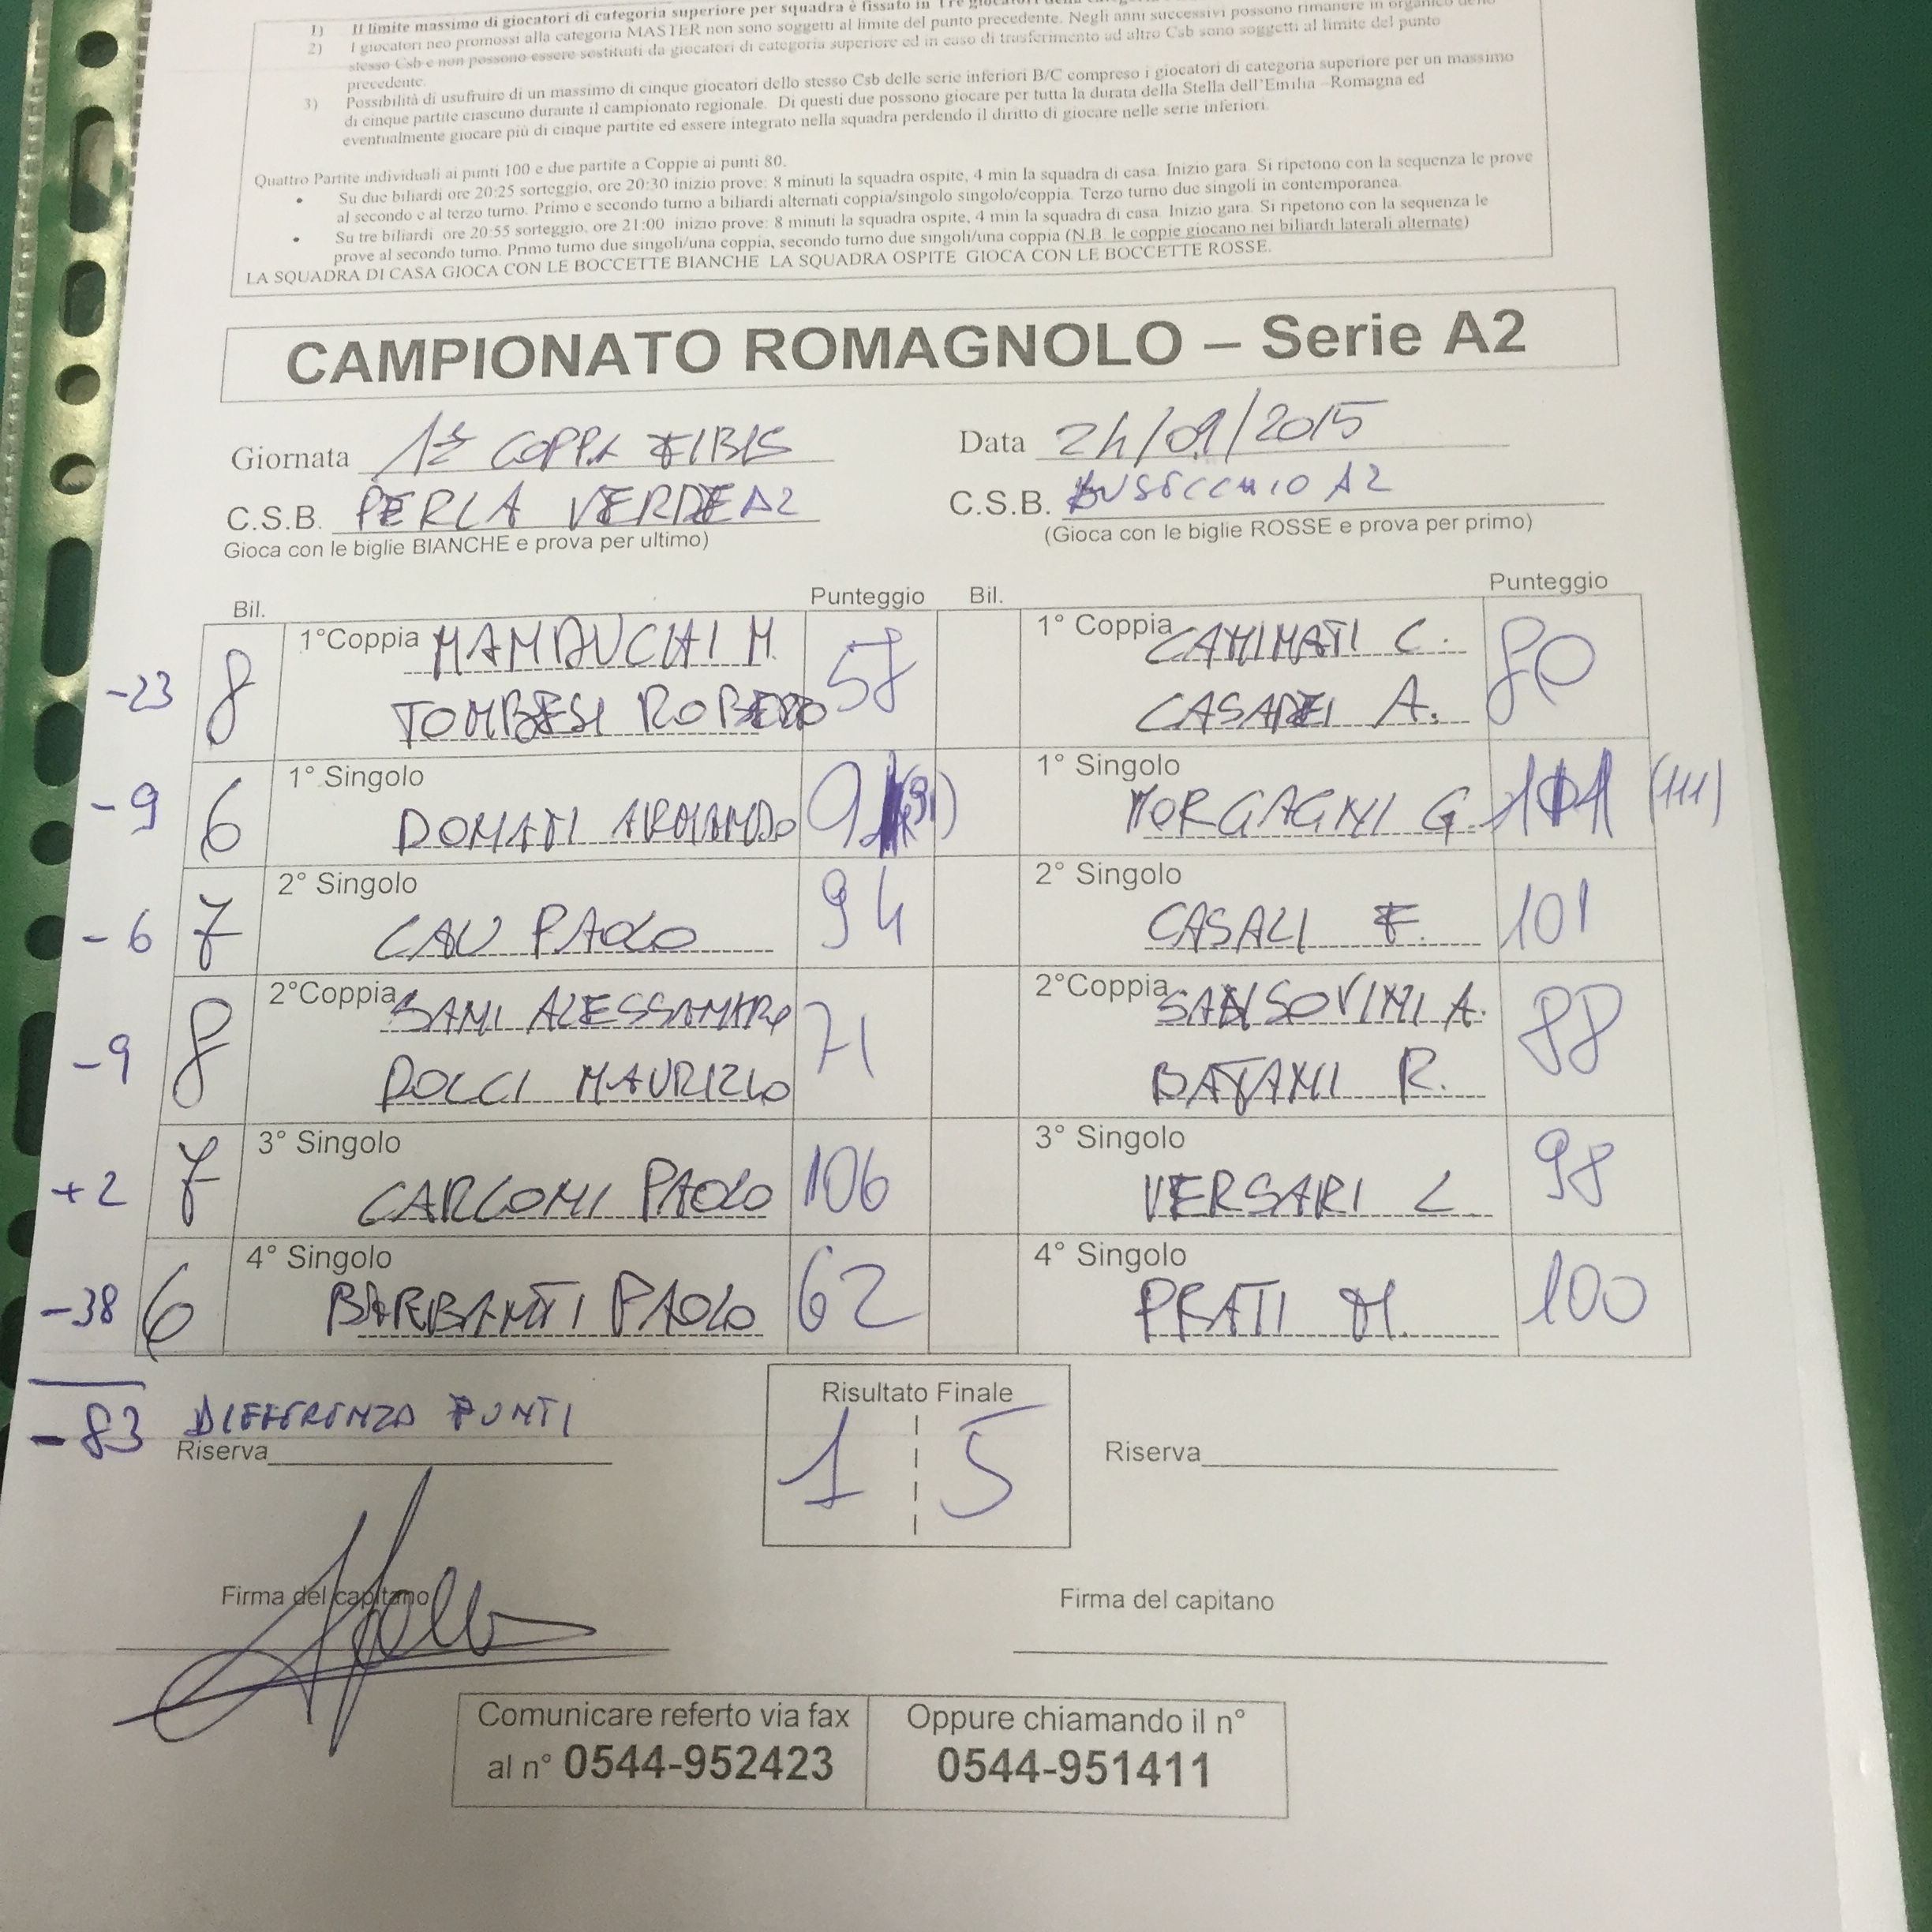 1) Il limite massimo di giocatori di categoria superiore per squadra è fissato in Tre
2) I giocatori neo promossi alla categoria MASTER non sono soggetti al limite del punto precedente. Negli anni successivi possono rimanere in organico dello
stesso Csb e non possono essere sostituiti da giocatori di categoria superiore ed in caso di trasferimento ad altro Csb sono soggetti al limite del punto
precedente.
3) Possibilità di usufruire di un massimo di cinque giocatori dello stesso Csb delle serie inferiori B/C compreso i giocatori di categoria superiore per un massimo
di cinque partite ciascuno durante il campionato regionale. Di questi due possono giocare per tutta la durata della Stella dell'Emilia –Romagna ed
eventualmente giocare più di cinque partite ed essere integrato nella squadra perdendo il diritto di giocare nelle serie inferiori.
Quattro Partite individuali ai punti 100 e due partite a Coppie ai punti 80.
• Su due biliardi ore 20:25 sorteggio, ore 20:30 inizio prove: 8 minuti la squadra ospite, 4 min la squadra di casa. Inizio gara. Si ripetono con la sequenza le prove
al secondo e al terzo turno. Primo e secondo turno a biliardi alternati coppia/singolo singolo/coppia. Terzo turno due singoli in contemporanea.
• Su tre biliardi ore 20:55 sorteggio, ore 21:00 inizio prove: 8 minuti la squadra ospite, 4 min la squadra di casa. Inizio gara. Si ripetono con la sequenza le
prove al secondo turno. Primo turno due singoli/una coppia, secondo turno due singoli/una coppia (N.B. le coppie giocano nei biliardi laterali alternate)
LA SQUADRA DI CASA GIOCA CON LE BOCCETTE BIANCHE LA SQUADRA OSPITE GIOCA CON LE BOCCETTE ROSSE.
CAMPIONATO ROMAGNOLO – Serie A2
Giornata 1ª COPPA FIBIS Data 24/01/2015
C.S.B. PERLA VERDE A2 C.S.B. BUSECCHIO A2
Gioca con le biglie BIANCHE e prova per ultimo) (Gioca con le biglie ROSSE e prova per primo)
Bil. Punteggio Bil. Punteggio
-23 8 1°Coppia MANDUCHI M. 58 1° Coppia CAMINATI C. 80
TOMBESI ROBERTO CASADEI A.
-9 6 1° Singolo 91 (91) 1° Singolo 101 (111)
DONATI ARMANDO MORGAGNI G.
-6 7 2° Singolo 94 2° Singolo 101
CAU PAOLO CASALI F.
-9 8 2°Coppia SAMI ALESSANDRO 71 2°Coppia SANSOVINI A. 88
DOLCI MAURIZIO BATANI R.
+2 7 3° Singolo 106 3° Singolo 98
CARLONI PAOLO VERSARI L.
-38 6 4° Singolo 62 4° Singolo 100
BARBANTI PAOLO PRATI M.
-83 DIFFERENZA PUNTI
Risultato Finale
Riserva 1 5 Riserva
Firma del capitano Firma del capitano
Comunicare referto via fax
al n° 0544-952423
Oppure chiamando il n°
0544-951411